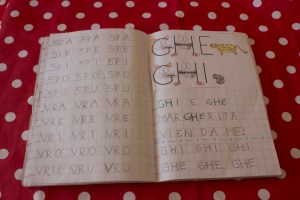 SPA SPA SPA
SPE SPE SPE
SPI SPI SPI
SPO SPO SPO
SPU SPU SPU
VRA VRA VRA
VRE VRE VRE
VRI VRI VRI
VRO VRO VRO
VRU VRU VRU
GHE
GHI
GHI E GHE
MARGHERITA
VIEN DA ME!
GHI GHI GHI
GHE GHE GHE